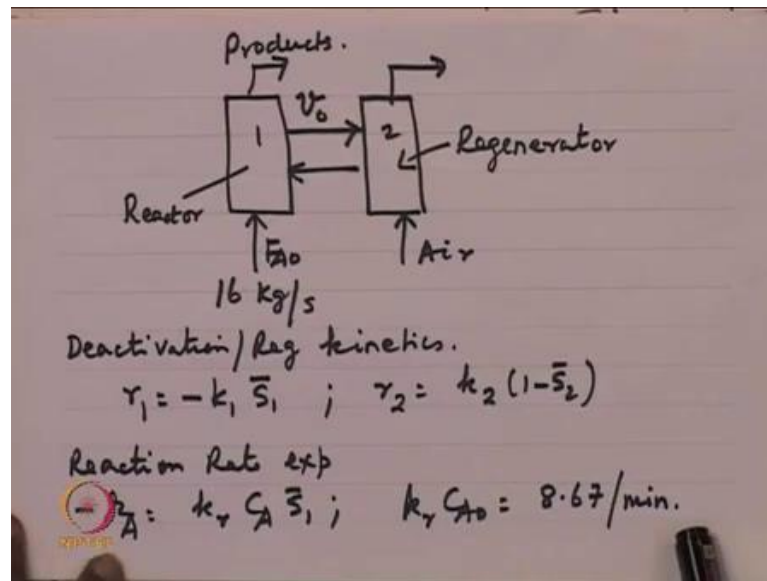 Products.
v₀
1
2
Regenerator
Reactor
F_A0
Air
16 kg/s
Deactivation/Reg kinetics.
r₁ = - k₁ S̄₁ ; r₂ = k₂ (1-S̄₂)
Reaction Rate exp
-r_A = k_r C_A S̄₁ ; k_r C_A0 = 8.67/min.
NPTEL